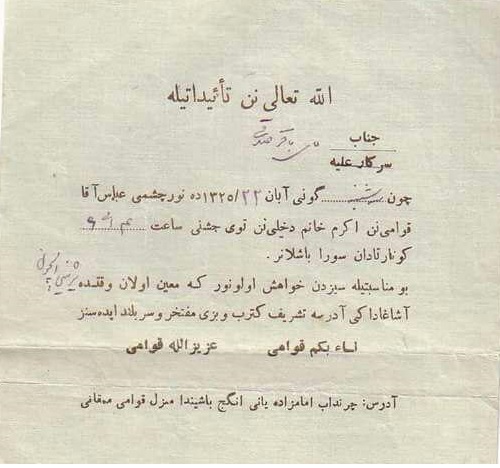 الله تعالی نن تأئیداتیله
جناب
سرکار علیه
چون سه شنبه گونی آبان ۱۳۲۵/۲۲ ده نورچشمی عباس آقا
قوامی نن اکرم خانم دخلی نن توی جشنی ساعت
کونارتادان سورا باشلانر.
بو مناسبتیله سیزدن خواهش اولونور که معین اولان وقتده
آشاغاداکی آدرسه تشریف کترب و بزی مفتخر و سربلند ایده سنز
نساء بکم قوامی    عزیزالله قوامی
آدرس: چرنداب امامزاده یانی انگج باشیندا منزل قوامی ممقانی